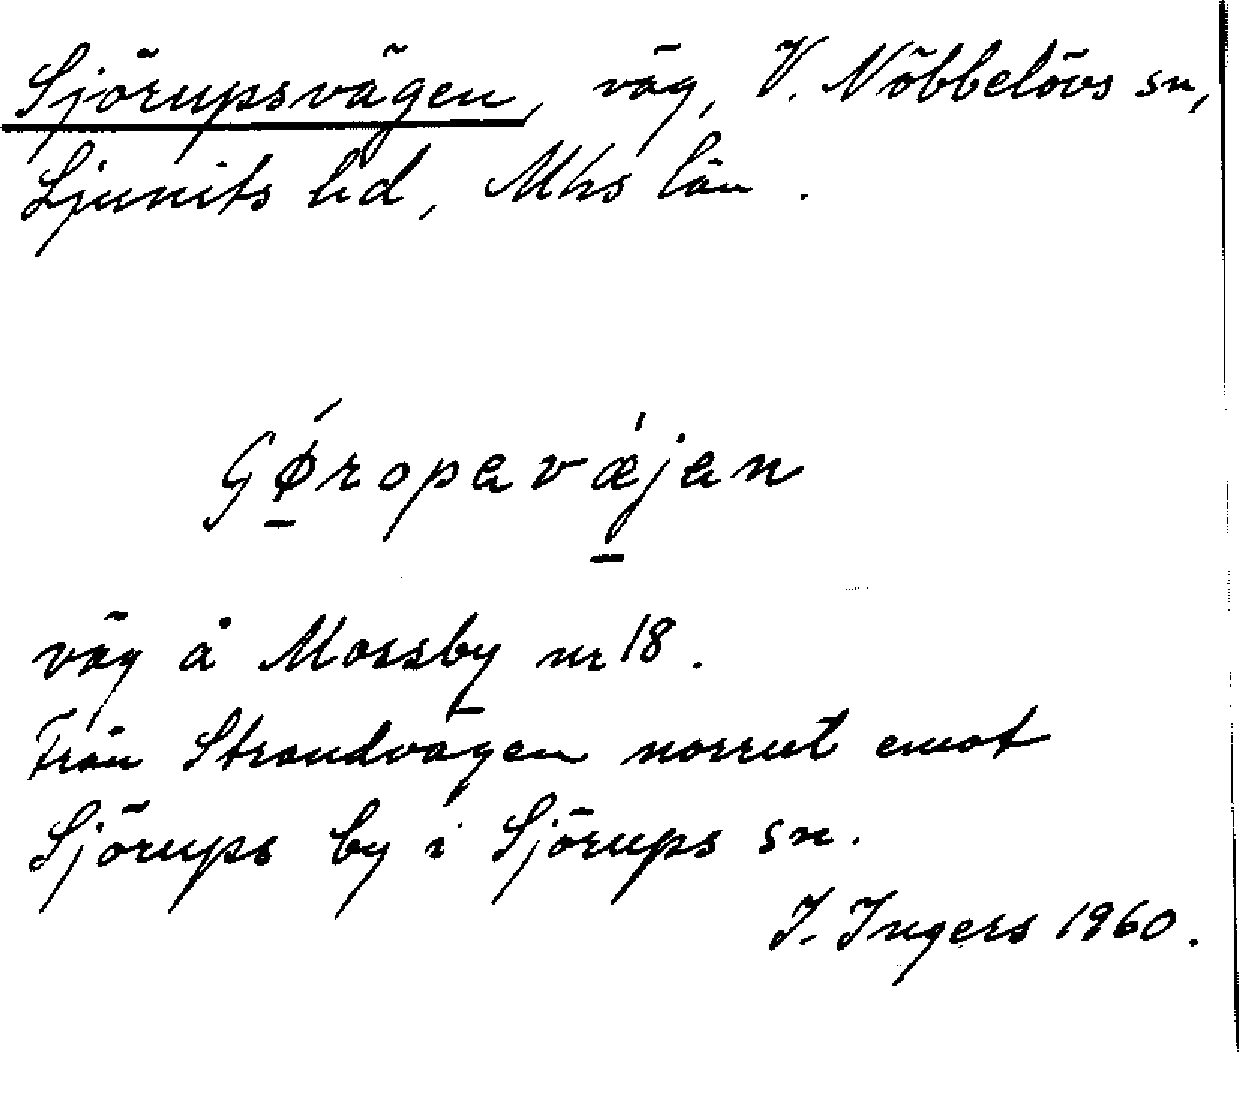 Sjörupsvägen, väg, V. Nöbbelövs sn,
Ljunits hd, Mhs län.
Gǿ̱ropavǽ̱jan
väg å Mossby nr 18.
Från Strandvägen norrut emot
Sjörups by i Sjörups sn.
I. Ingers 1960.